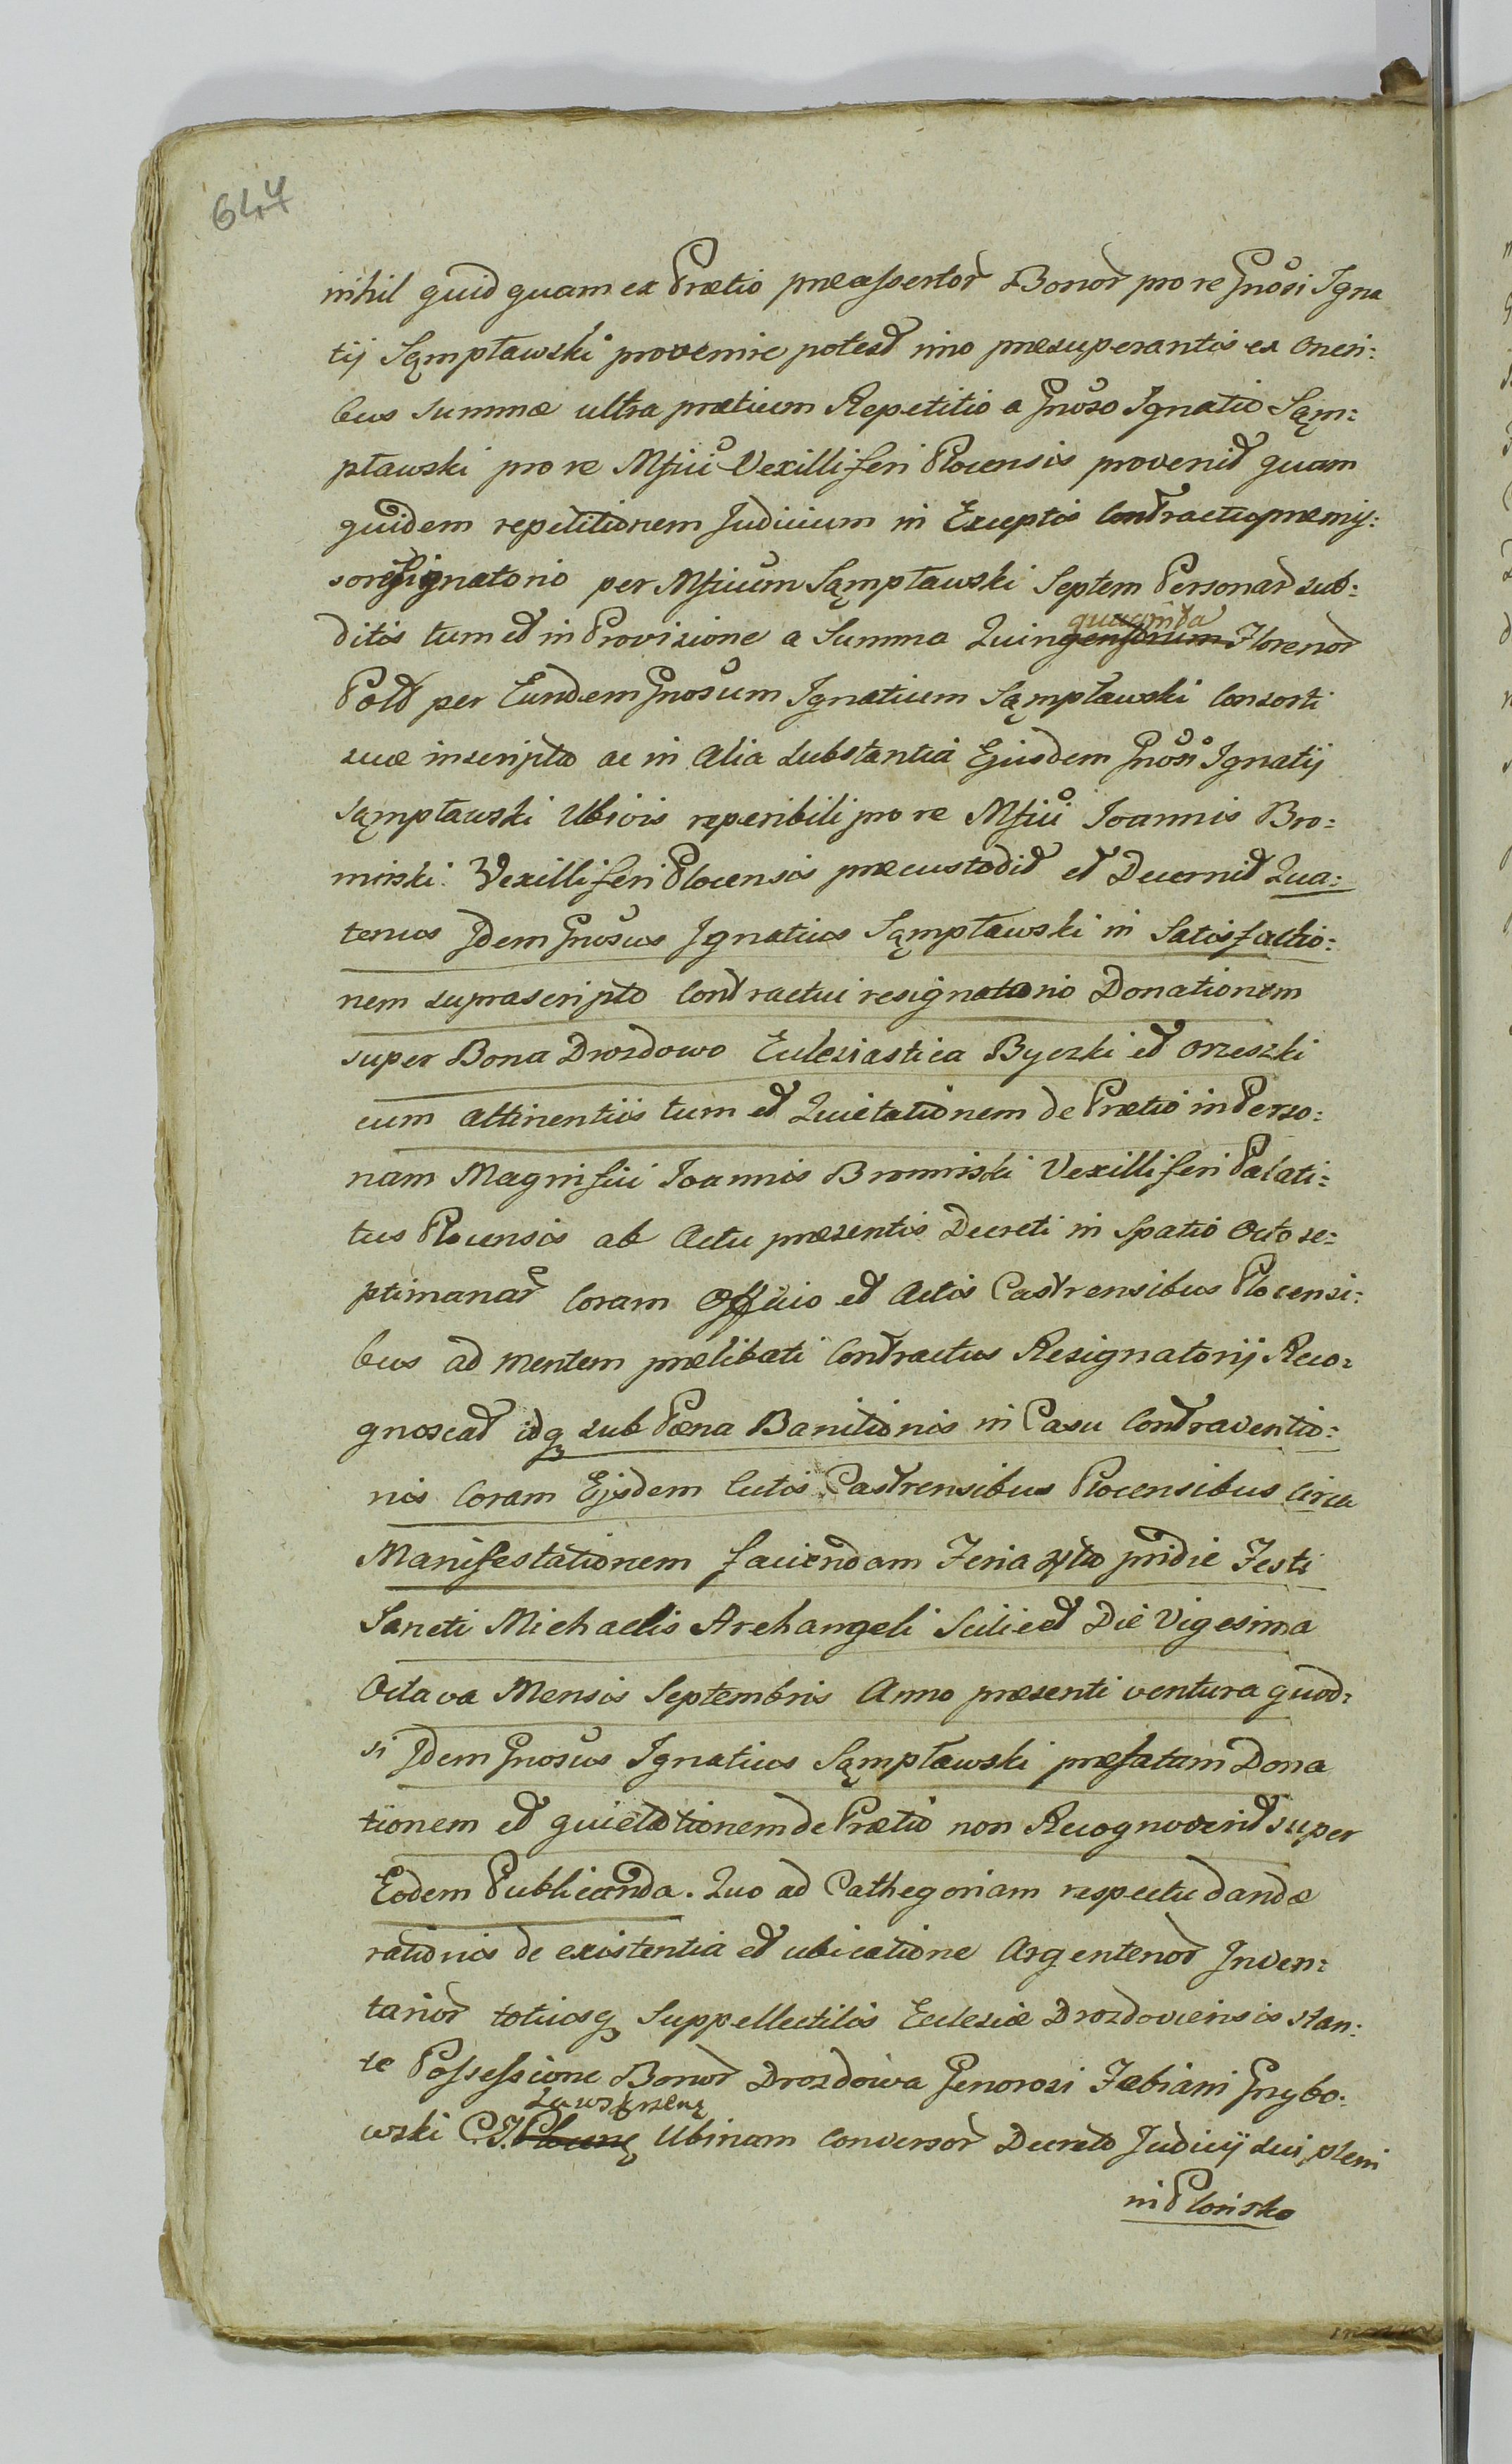 647
nihil quidquam ex Prætio præassertor Bonor pro re Gnosi Igna
tij Sąmpławski provenire potest imo præsuperantis ex Oneri:
bus Summæ ultra prætium Repetitio a Gnoso Ignatio Sąm:
pławski pro re Mfici Vexilliferi Plocensis provenit quam
quidem repetitionem Judicium in Exceptis Contractu præmis:
so resignatorio per Mficum Sąmpławski Septem Personar sub:
ditis tum et in Provisione a Summa Quingentorum Florenor
quaginta
Polt per Eundem Gnosum Ignatium Sąmpławski Consorti
suæ inscripto ac in Alia Substantia Ejusdem Gnosi Ignatij
Sąmpławski Ubivis reperibili pro re Mfici Joannis Bro:
miński Vexilliferi Plocensis præcustodit et Decernit Qua:
tenus Idem Gnosus Ignatius Sąmpławski in Satisfactio:
nem suprascripto Contractui resignatorio Donationem
super Bona Drozdowo Eclesiastica Byczki et Orzeszki
cum attinentiis tum et Quietationem de Prætio in Perso:
nam Magnifici Joannis Bromirski Vexilliferi Palati:
tus Plocensis ab Actu præsentis Decreti in Spatio Octo se:
ptimanar Coram Officio et Actis Castrensibus Plocensi:
bus ad mentem prælibati Contractus Resignatorij Reco:
gnoscat idq sub Pœna Banitionis in Casu Contraventio:
nis Coram Ejsdem Actis Castrensibus Plocensibus Circa
Manifestationem faciendam Feria pridie Festi
Sancti Michaelis Archangeli Scilicet Die Vigesima
Octava Mensis Septembris Anno præsenti ventura quod:
si Idem Gnosus Ignatius Sąmpławski præfatam Dona
tionem et quietationem de Prætio non Recognoverit super
Eodem Publicanda. Quo ad Cathegoriam respectu dandæ
rationis de existentia et ubicatione Argenteror Inven:
tarior totiusq Suppellectilis Eclesiæ Drozdoviensis stan:
te Possessione Bonor Drozdowa Generosi Fabiani Grzybo:
Zawskrzens
wski C. J. Plocens Ubinam Conversor Decreto Judicij sui pleni
in Płońsko